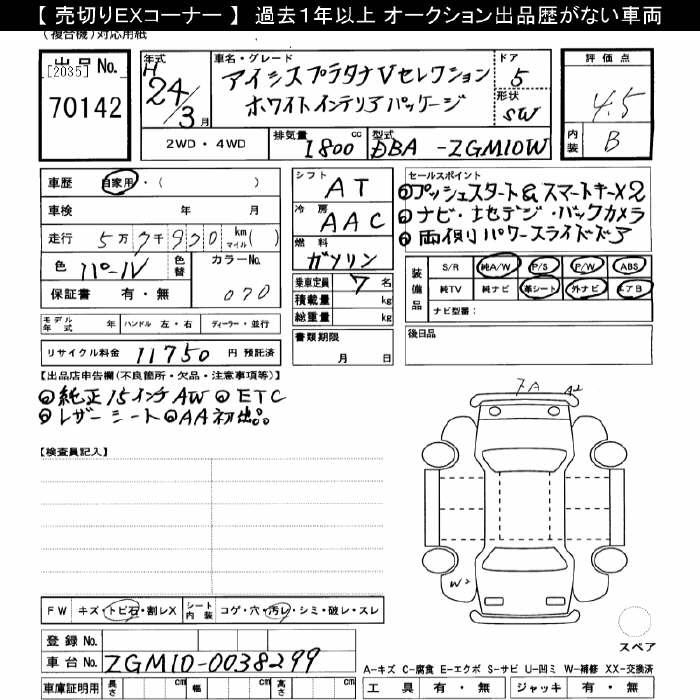 【 売切りEXコーナー 】 過去1年以上 オークション出品歴がない車両
(複合機)対応用紙
出品No.
[2035]
70142
年式
H
24/3月
車名・グレード
アイシスプラタナVセレクション
ホワイトインテリアパッケージ
ドア
5
形状
SW
評価点
4.5
内装
B
2WD・4WD
排気量
1800 cc
型式
DBA -ZGM10W
車歴 自家用・( )
車検 年 月
走行 5万7千930 km マイル( )
色 パール 色替 カラーNo.
070
保証書 有・無
シフト AT
冷房 AAC
燃料 ガソリン
乗車定員 7名
積載量 kg
総重量 kg
セールスポイント
プッシュスタート&スマートキー×2
ナビ・地デジ・バックカメラ
両側パワースライドドア
装備品
S/R 純A/W P/S P/W ABS
純TV 純ナビ 革シート 外ナビ エアB
ナビ型番:
モデル年式 年 ハンドル 左・右 ディーラー・並行
リサイクル料金 11750 円 預託済
書類期限
月 日
後日品
【出品店申告欄(不良箇所・欠品・注意事項等)】
純正15インチAW ETC
レザーシート AA初出品。
【検査員記入】
A2
W2
FW キズ・トビ石・割レX シート内装 コゲ・穴・汚レ・シミ・破レ・スレ
登録No.
車台No. ZGM10-0038299
車庫証明用 長さ cm 幅 cm 高さ cm
スペア
A-キズ C-腐食 E-エクボ S-サビ U-凹ミ W-補修 XX-交換済
工具 有・無 ジャッキ 有・無